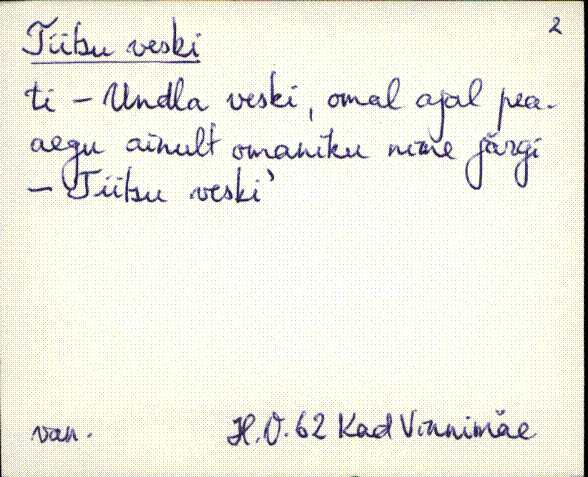 2
Tiitsu veski
ti – Undla veski, omal ajal pea-
aegu ainult omaniku nime järgi
– Tiitsu veski'
van.
H.O. 62 Kad Vinnimäe